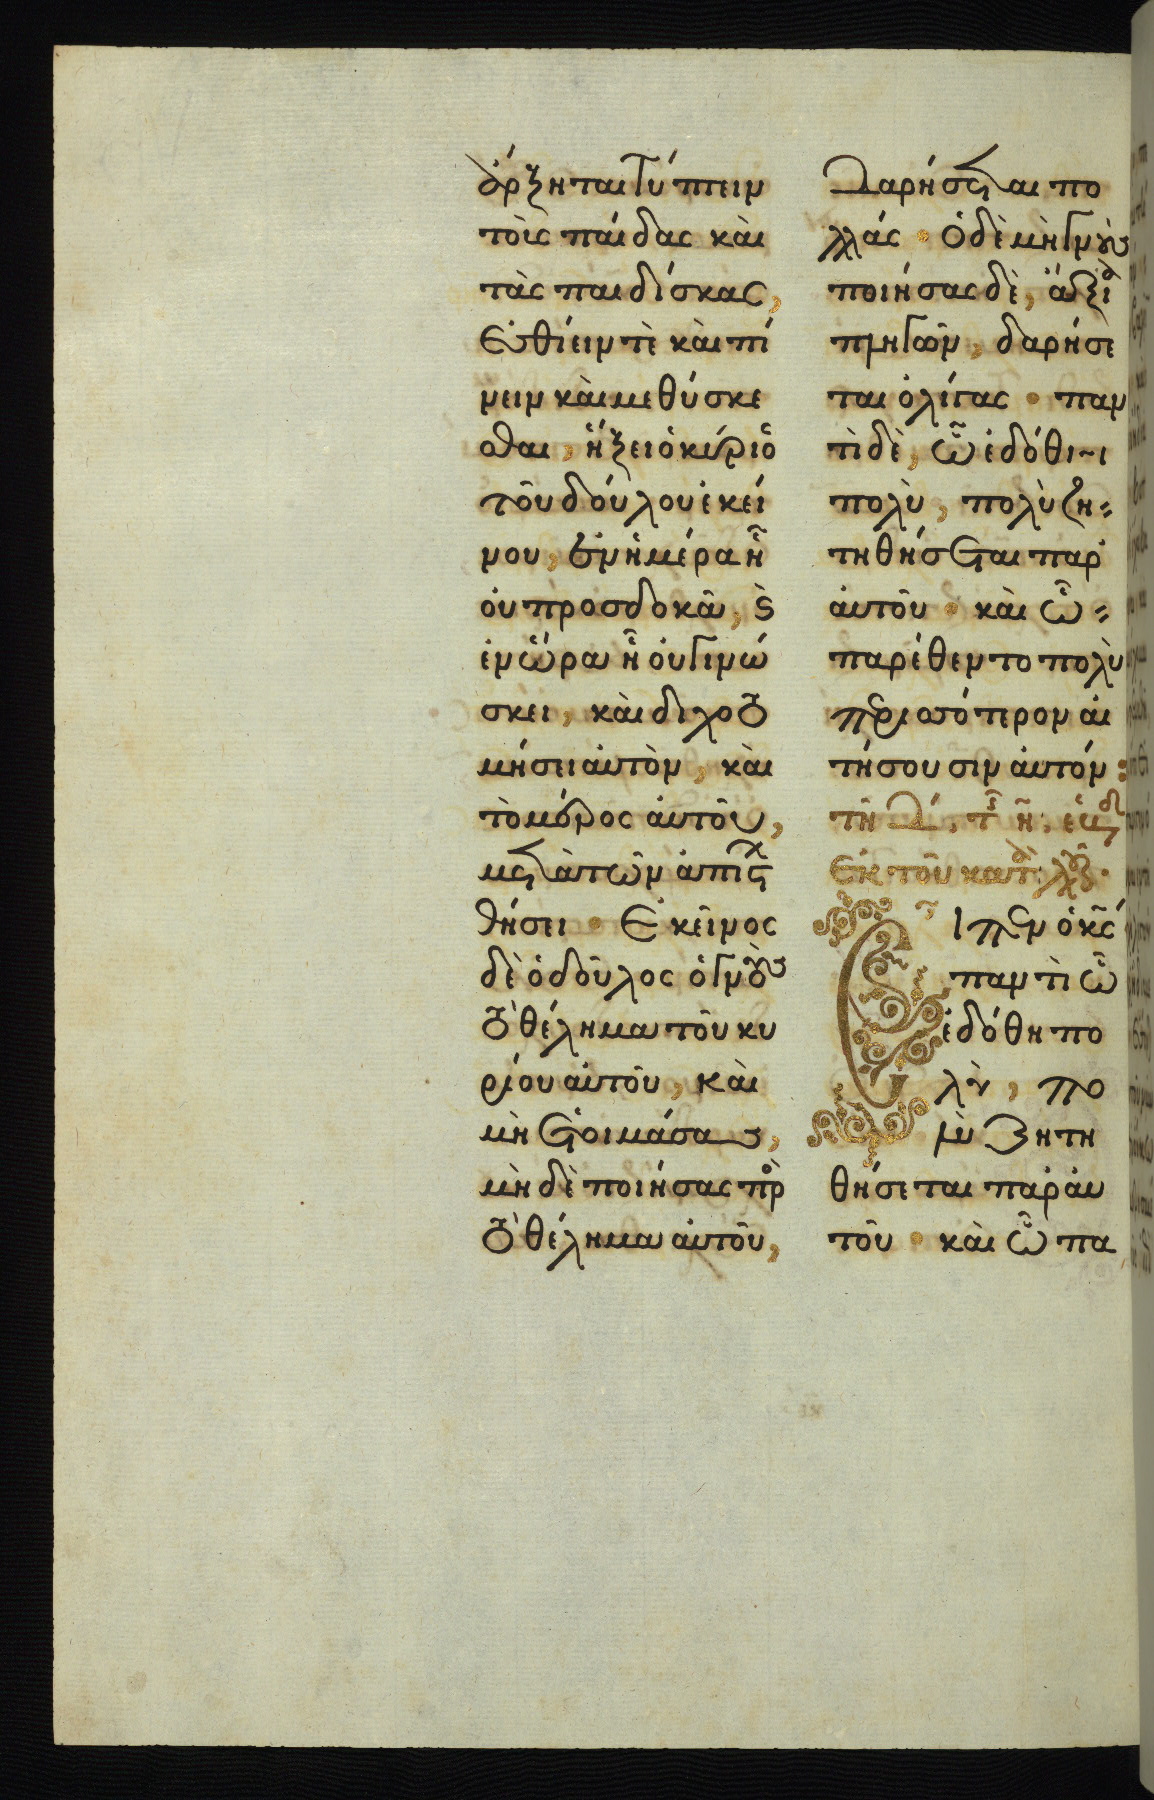 ἄρξηται τύπτειν
τοὺς παῖδας καὶ
τὰς παιδίσκας,
ἐσθίειν τὲ καὶ πί
νειν καὶ μεθύσκε
σθαι, ἥξει ὁ κύριο
τοῦ δούλου ἐκεί
νου, ἐν ἡμέρα ἧ
οὐ προσδοκᾶ, ϗ
ἐν ὥρα ἧ οὐ γινώ
σκει, καὶ διχοτο
μήσει αὐτὸν, καὶ
τὸ μέρος αὐτοῦ,
μετὰ τῶν ἀπίστ
θήσει · Ἐκεῖνος
δὲ ὁ δοῦλος ὁ γνοὺς
τὸ θέλημα τοῦ κυ
ρίου αὐτοῦ, καὶ
μὴ ἑτοιμάσας,
μὴ δὲ ποιήσας πρὸ
τὸ θέλημα αὐτοῦ,
δαρήσεται πο
λλάς · ὁ δὲ μὴ γνοὺς
ποιήσας δὲ, ἄξια
πληγῶν, δαρήσε
ται ὀλίγας · παν
τὶ δὲ, ὧ ἐδόθη
πολὺ, πολὺ ζη=
τηθήσεται παρ'
αὐτοῦ · καὶ ὧ=
παρέθεντο πολὺ
περισσότερον αἰ
τήσουσιν αὐτόν :
τῆ δ,
Ἐκ τοῦ κατὰ λουκ.
Εἶπεν ὁ κς
παντὶ ὧ
ἐδόθη πο
λὺ, πο
λὺ ζητη
θήσεται παρ' αυ
τοῦ · καὶ ὧ πα